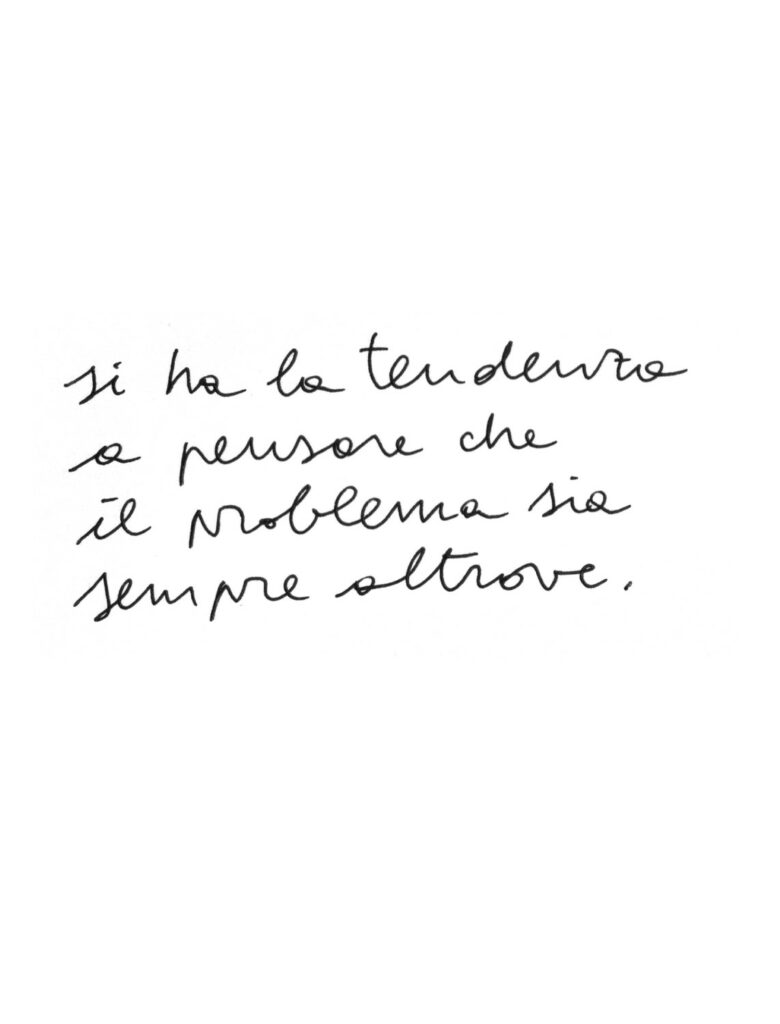 si ha la tendenza
a pensare che
il problema sia
sempre altrove.